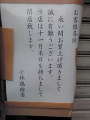 お客様各位
永い間お引立て頂きまして
誠に有難うございます。
当店は十一月末日を持ちまして
閉店致します。